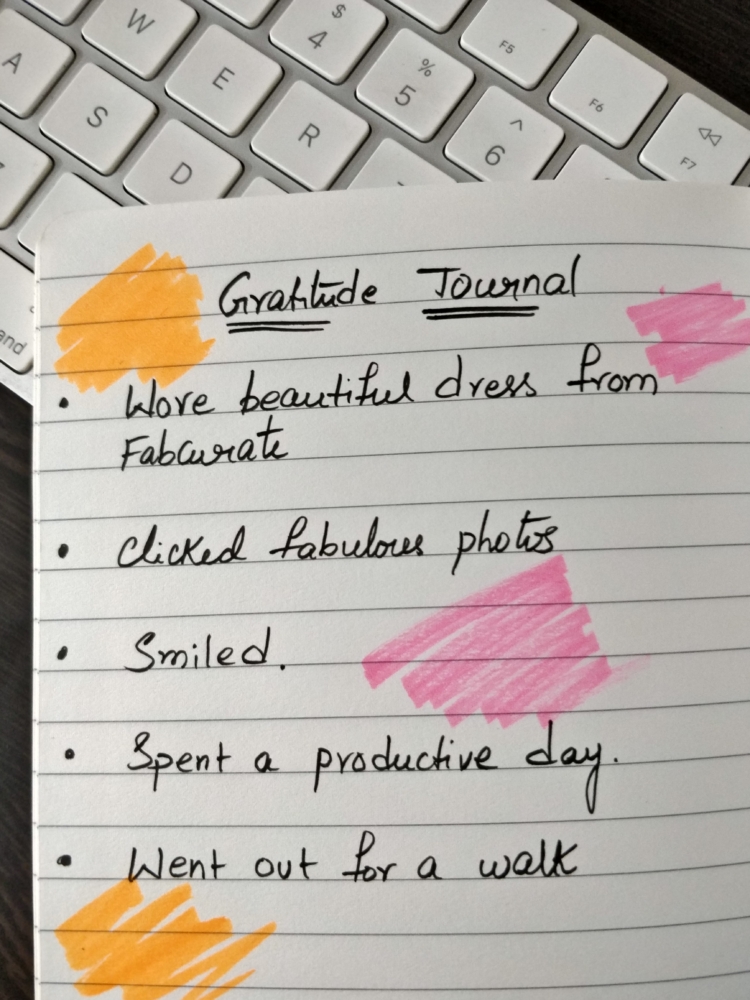 W
$
4
F5
A
E
%
5
F6
S
R
^
6
F7
D
and
Gratitude Journal
• Wore beautiful dress from
Fabcurate
• Clicked fabulous photos
• Smiled.
• Spent a productive day.
• Went out for a walk